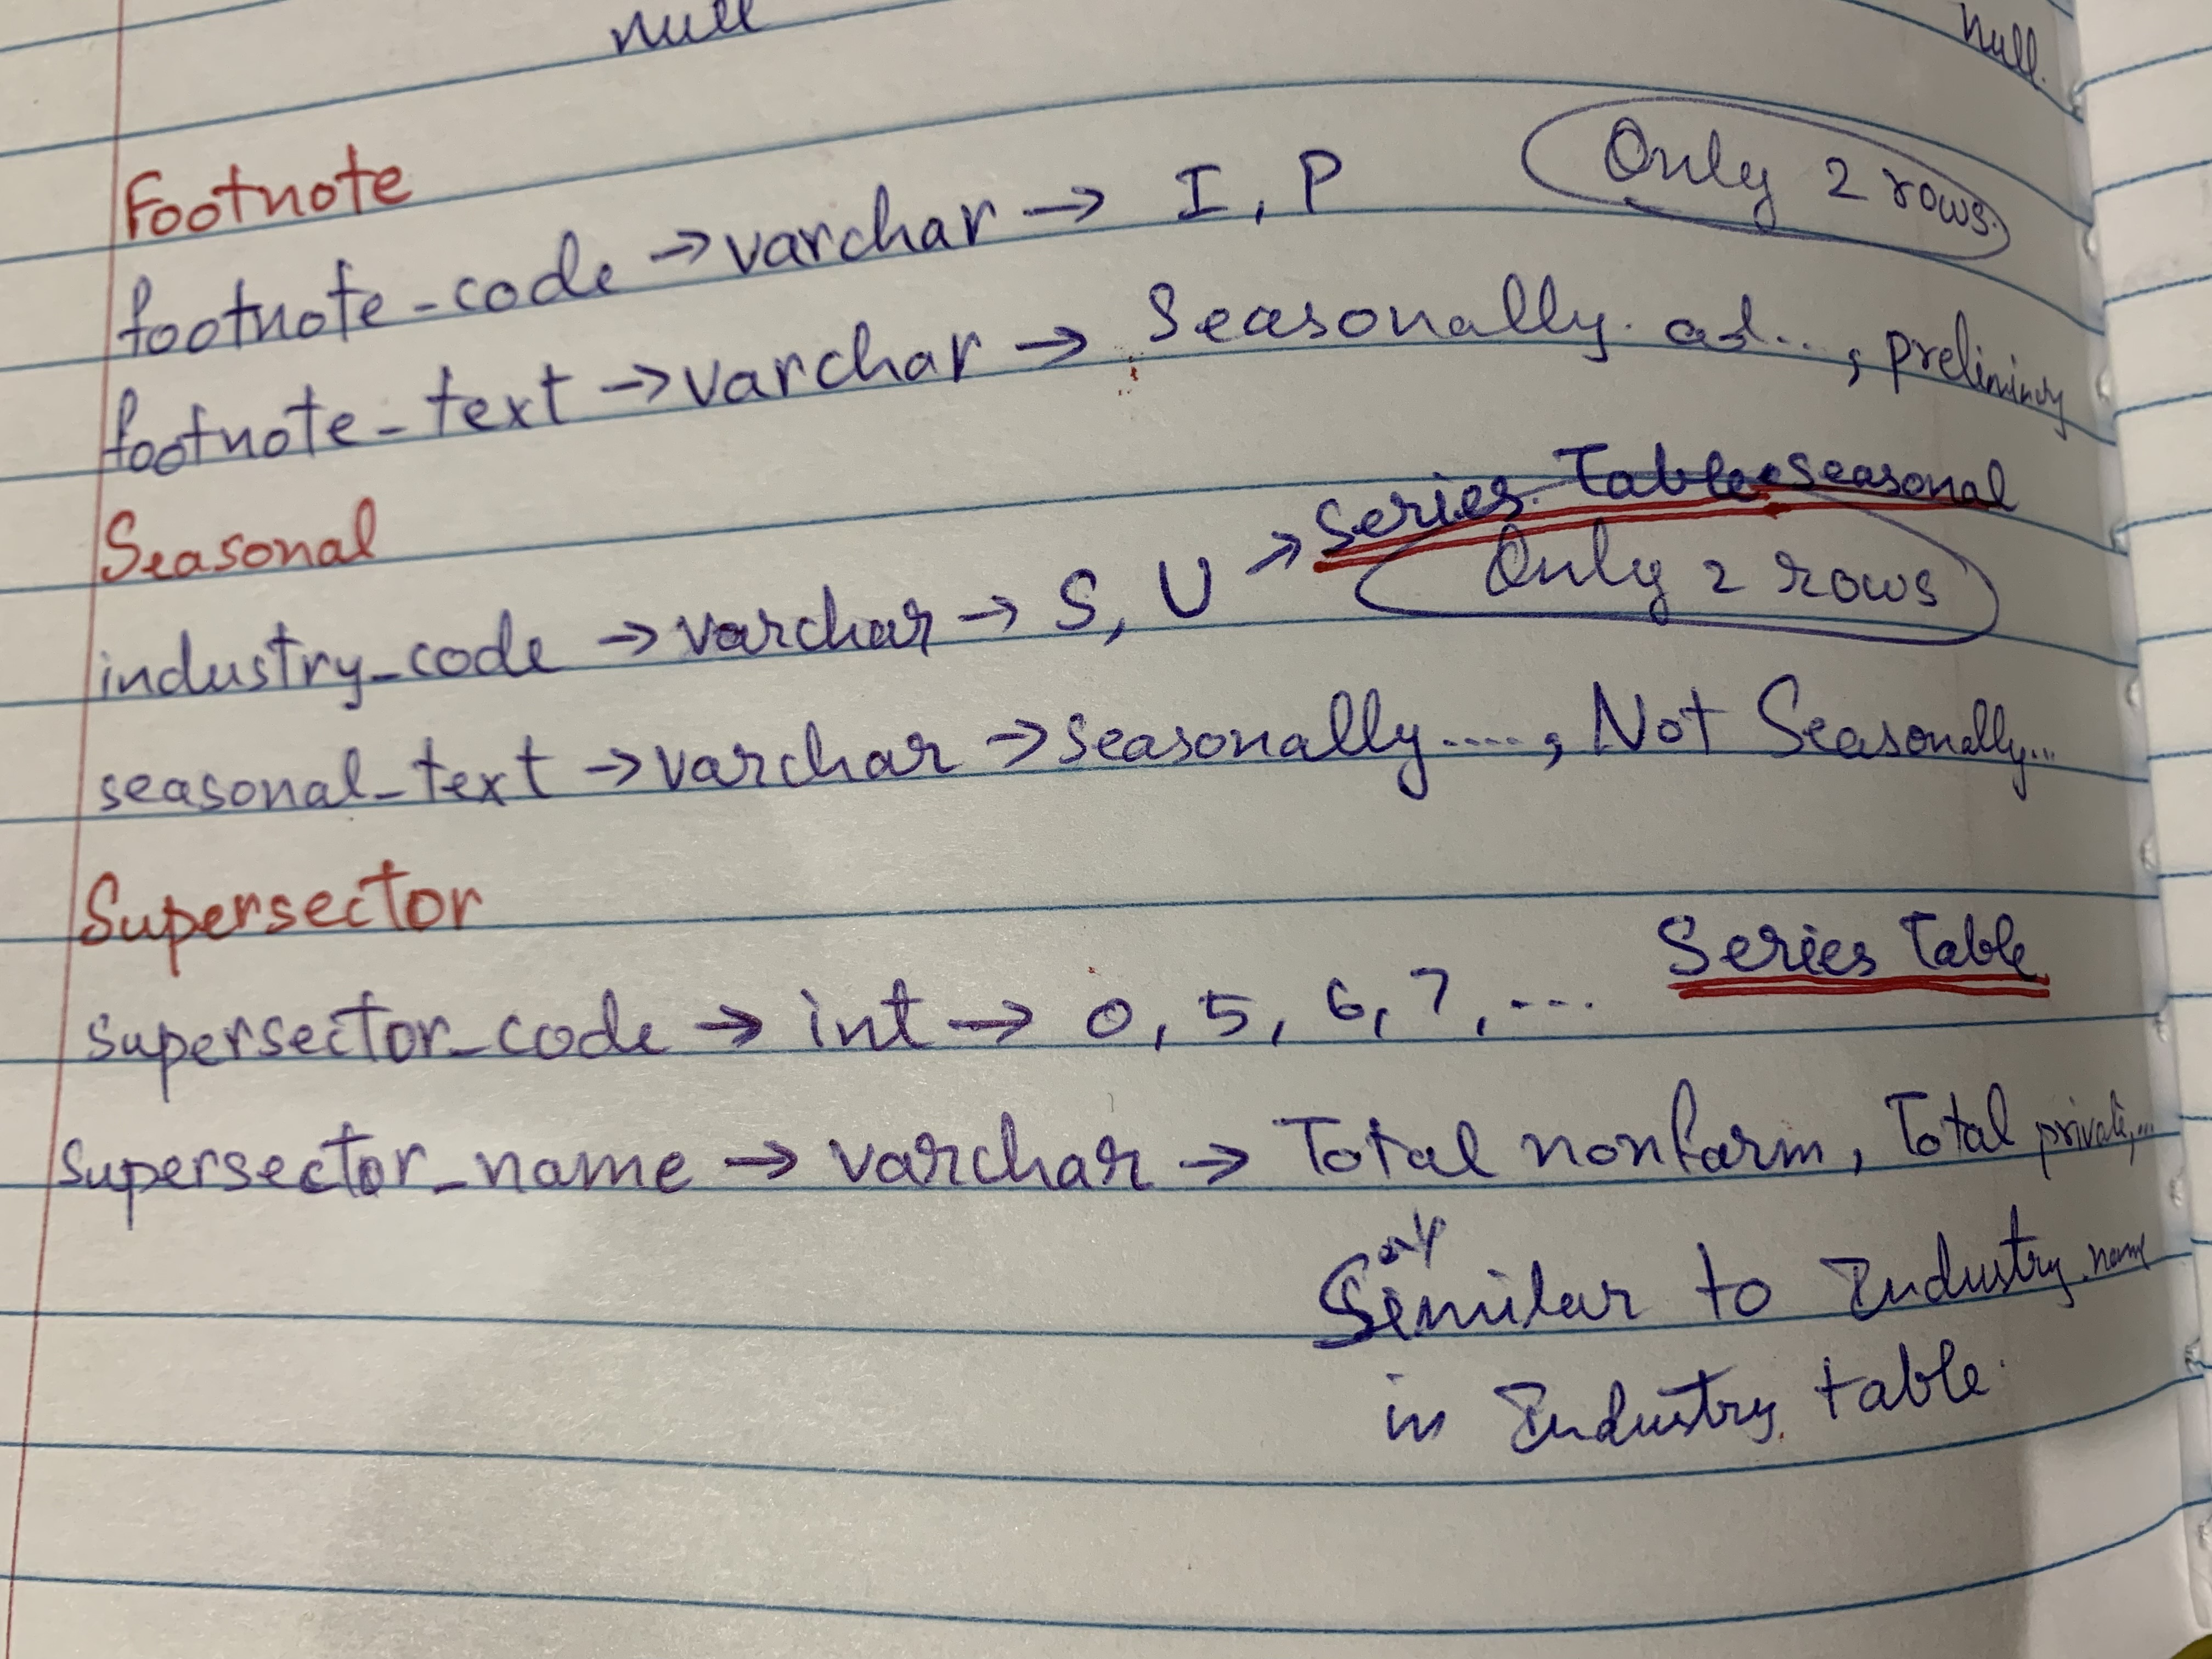 null null.
Footnote
footnote_code → varchar → I, P Only 2 rows.
footnote_text → varchar → Seasonally. ad..., preliminry
Seasonal
Series Table • seasonal
industry_code → varchar → S, U → Only 2 rows
seasonal_text → varchar → seasonally....., Not Seasonally...
Supersector
Series Table
supersector_code → int → 0, 5, 6, 7, ...
supersector_name → varchar → Total nonfarm, Total private,...
Similar to Industry_name
in Industry table.